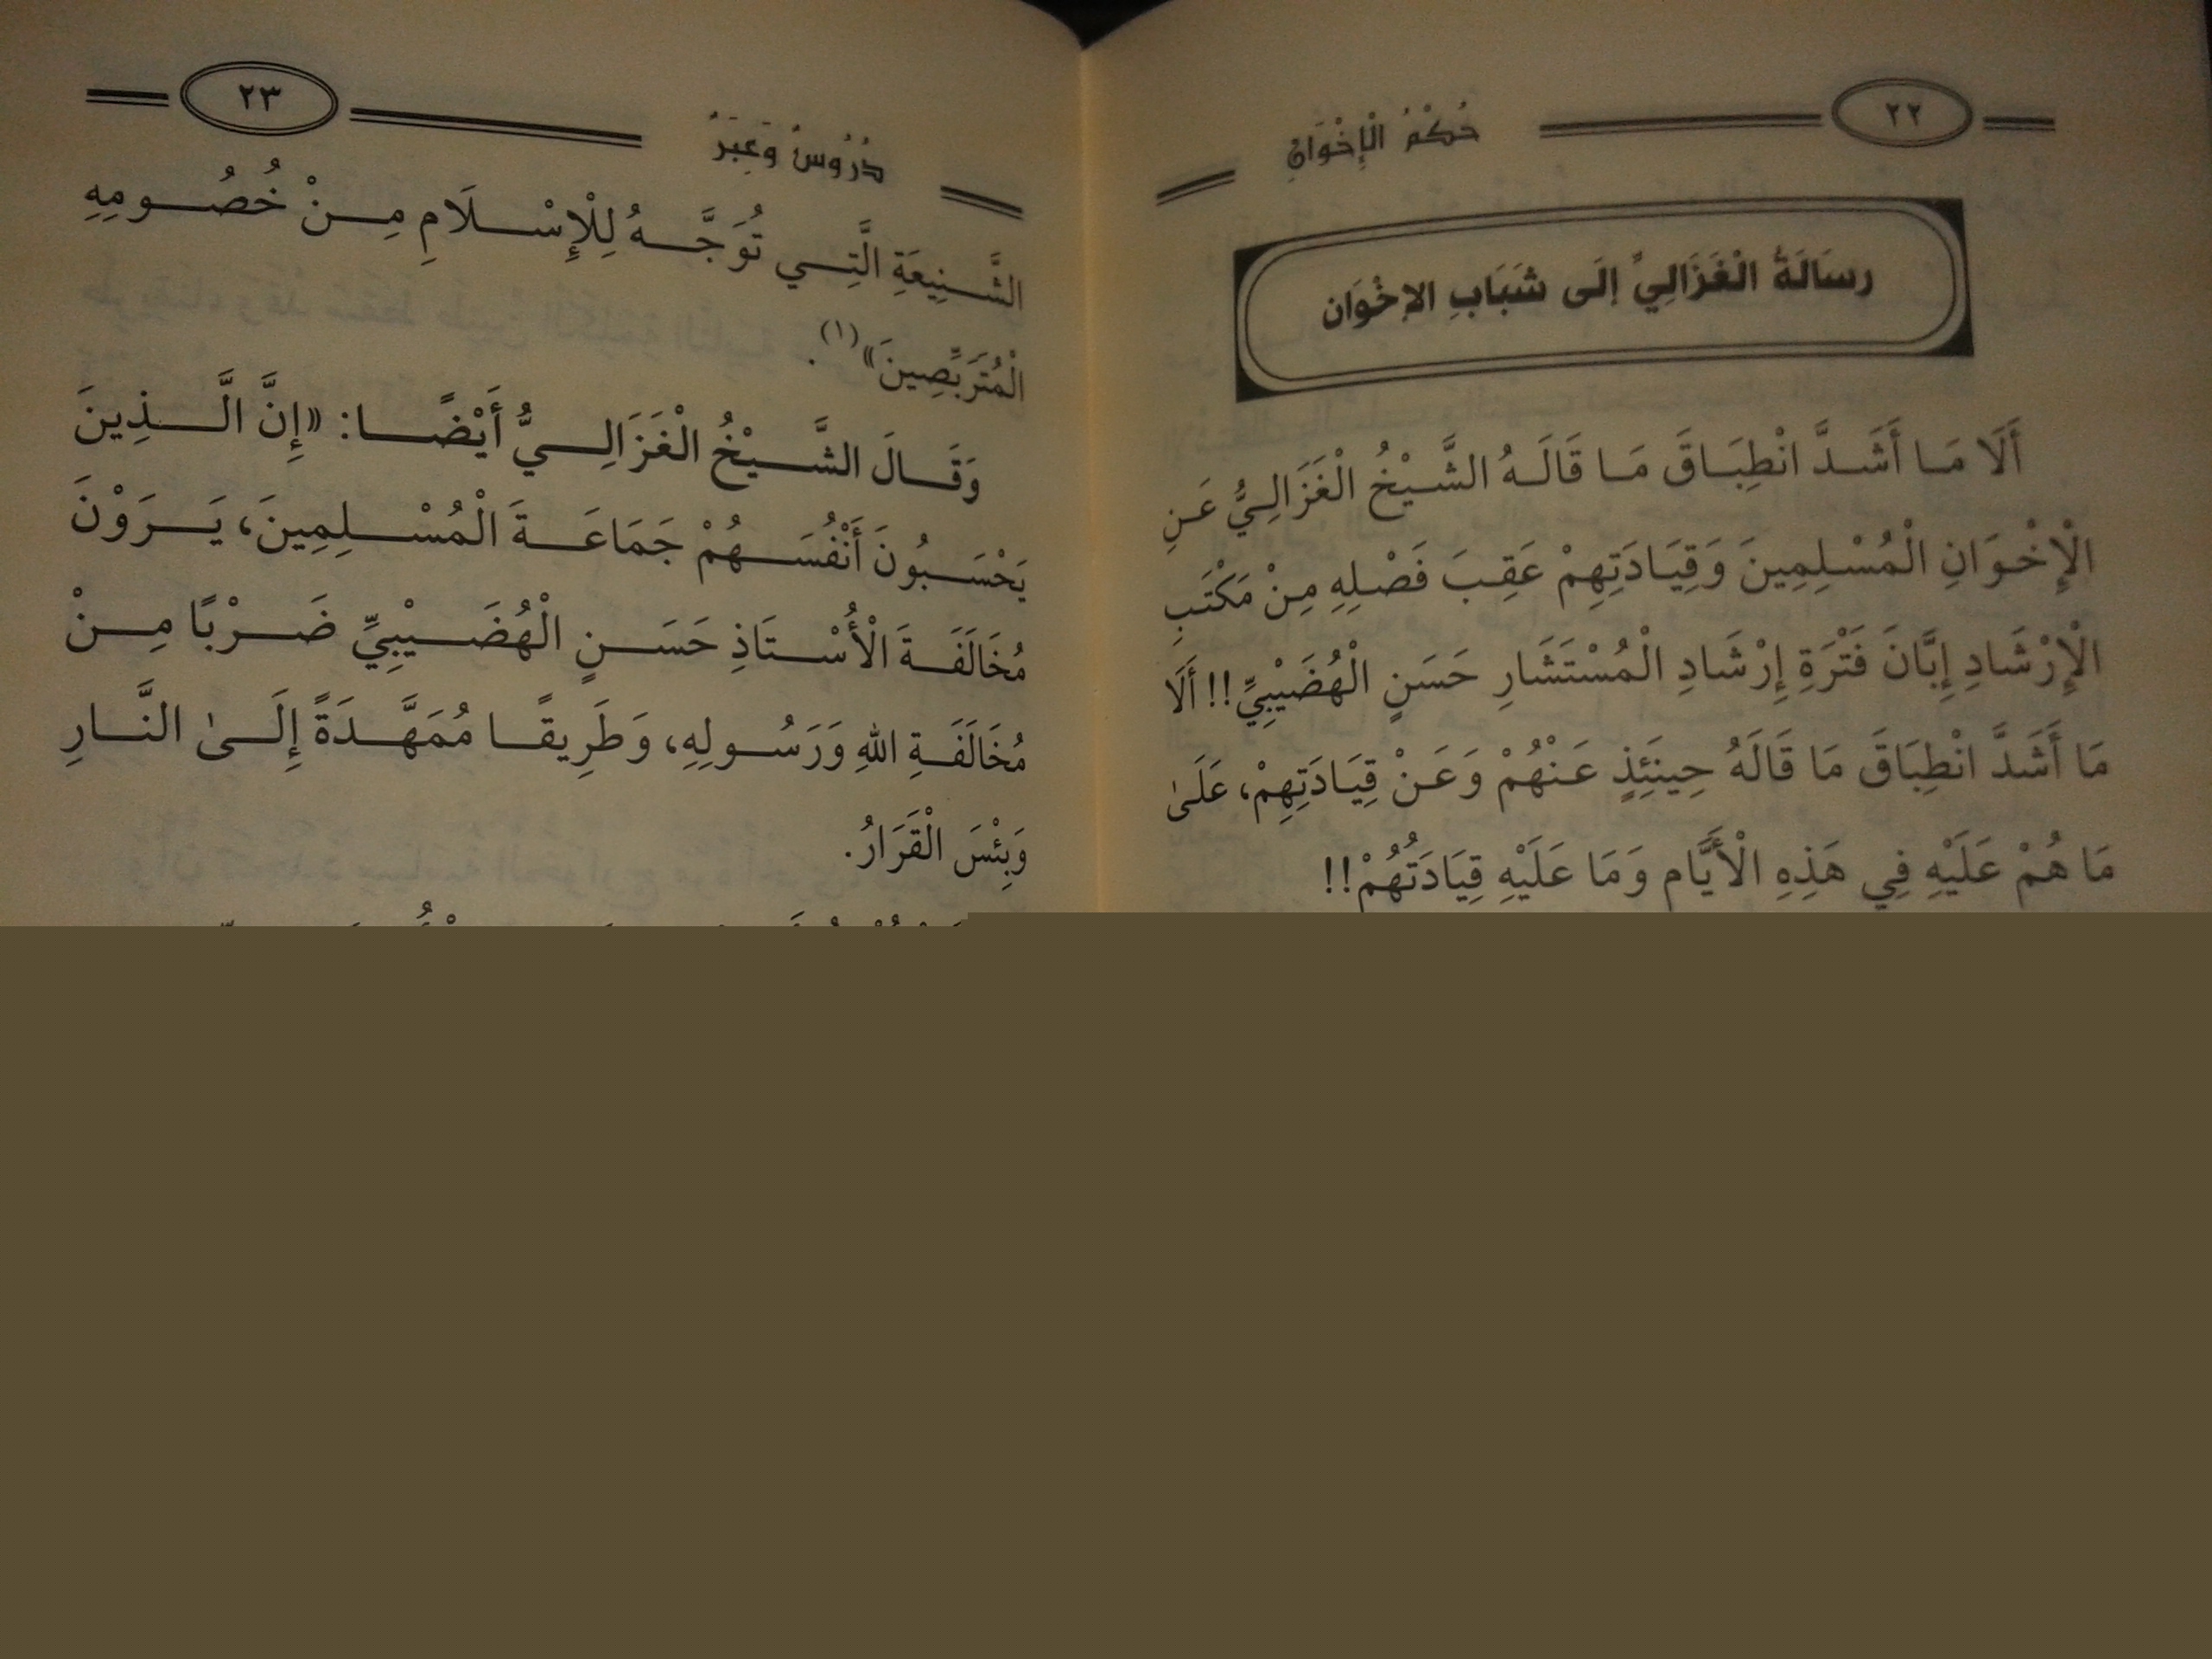 ٢٢
حُكْمُ الْإِخْوَانِ
رِسَالَةُ الْغَزَالِيِّ إِلَى شَبَابِ الإِخْوَان
أَلَا مَا أَشَدَّ انْطِبَاقَ مَا قَالَهُ الشَّيْخُ الْغَزَالِيُّ عَنِ
الْإِخْوَانِ الْمُسْلِمِينَ وَقِيَادَتِهِمْ عَقِبَ فَصْلِهِ مِنْ مَكْتَبِ
الْإِرْشَادِ إِبَّانَ فَتْرَةِ إِرْشَادِ الْمُسْتَشَارِ حَسَنٍ الْهُضَيْبِيِّ!! أَلَا
مَا أَشَدَّ انْطِبَاقَ مَا قَالَهُ حِينَئِذٍ عَنْهُمْ وَعَنْ قِيَادَتِهِمْ، عَلَىٰ
مَا هُمْ عَلَيْهِ فِي هَذِهِ الْأَيَّامِ وَمَا عَلَيْهِ قِيَادَتُهُمْ!!
٢٣
دُرُوسٌ وَعِبَرٌ
الشَّنِيعَةِ الَّتِي تُوَجَّهُ لِلْإِسْلَامِ مِنْ خُصُومِهِ
الْمُتَرَبِّصِينَ»(١).
وَقَالَ الشَّيْخُ الْغَزَالِيُّ أَيْضًا: «إِنَّ الَّذِينَ
يَحْسَبُونَ أَنْفُسَهُمْ جَمَاعَةَ الْمُسْلِمِينَ، يَرَوْنَ
مُخَالَفَةَ الْأُسْتَاذِ حَسَنٍ الْهُضَيْبِيِّ ضَرْبًا مِنْ
مُخَالَفَةِ اللهِ وَرَسُولِهِ، وَطَرِيقًا مُمَهَّدَةً إِلَىٰ النَّارِ
وَبِئْسَ الْقَرَارُ.